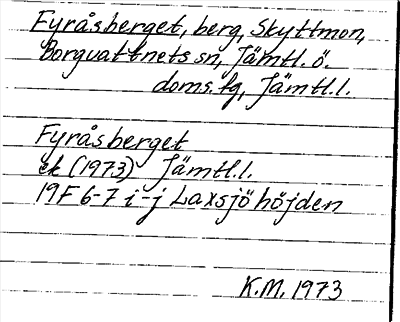 Fyråsberget, berg, Skyttmon,
Borgvattnets sn, Jämtl. ö.
doms. fg, Jämtl.l.
Fyråsberget
ek (1973) Jämtl.l.
19F 6-7 i-j Laxsjöhöjden
K.M. 1973